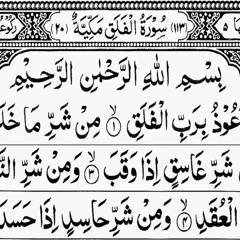 (١١٣) سُوْرَةُ الْفَلَقِ مَكِّيَّةٌ (٢٠)
بِسْمِ اللّٰهِ الرَّحْمٰنِ الرَّحِيْمِ
عُوْذُ بِرَبِّ الْفَلَقِ ۙ﴿١﴾ مِنْ شَرِّ مَا خَلَ
شَرِّ غَاسِقٍ اِذَا وَقَبَ ۙ﴿٣﴾ وَمِنْ شَرِّ النَّ
الْعُقَدِ ۙ﴿٤﴾ وَمِنْ شَرِّ حَاسِدٍ اِذَا حَسَدَ